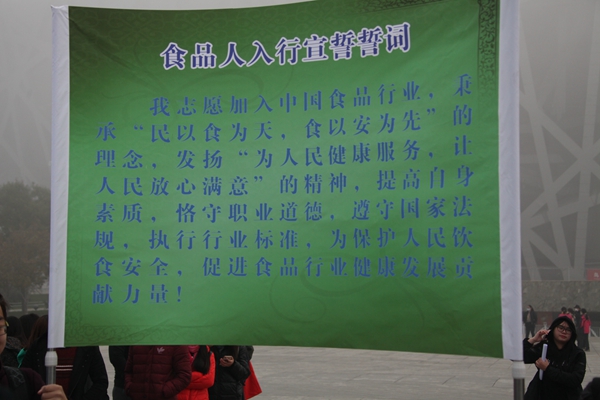 食品人入行宣誓誓词
我志愿加入中国食品行业，秉
承“民以食为天，食以安为先”的
理念，发扬“为人民健康服务，让
人民放心满意”的精神，提高自身
素质，恪守职业道德，遵守国家法
规，执行行业标准，为保护人民饮
食安全，促进食品行业健康发展贡
献力量！